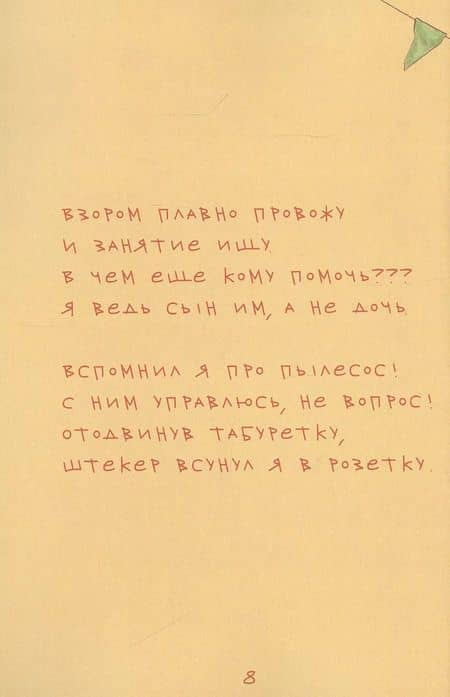 ВЗОРОМ ПЛАВНО ПРОВОЖУ
И ЗАНЯТИЕ ИЩУ.
В ЧЕМ ЕЩЕ КОМУ ПОМОЧЬ???
Я ВЕДЬ СЫН ИМ, А НЕ ДОЧЬ.
ВСПОМНИЛ Я ПРО ПЫЛЕСОС!
С НИМ УПРАВЛЮСЬ, НЕ ВОПРОС!
ОТОДВИНУВ ТАБУРЕТКУ,
ШТЕКЕР ВСУНУЛ Я В РОЗЕТКУ.
8